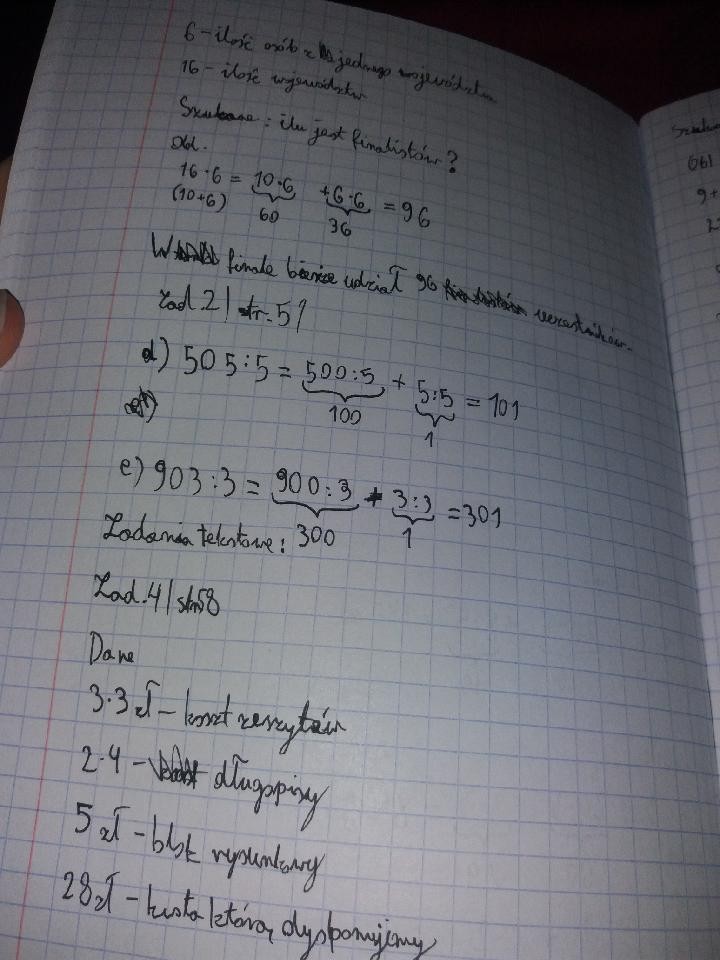 6 - ilość osób z jednego województwa
16 - ilość województw
Szukane: ilu jest finalistów?
Obl.
16·6 = 10·6 +6·6 = 96
(10+6) 60 36
W finale bierze udział 96 uczestników.
Zad.2/ str.51
d) 505:5 = 500:5 + 5:5 = 101
100 1
e) 903:3 = 900:3 + 3:3 = 301
Zadania tekstowe: 300 1
Zad.4/ str58
Dane
3·3zł - koszt zeszytów
2·4 - długopisy
5zł - blok rysunkowy
28zł - kwota którą dysponujemy
Obl
9+
2